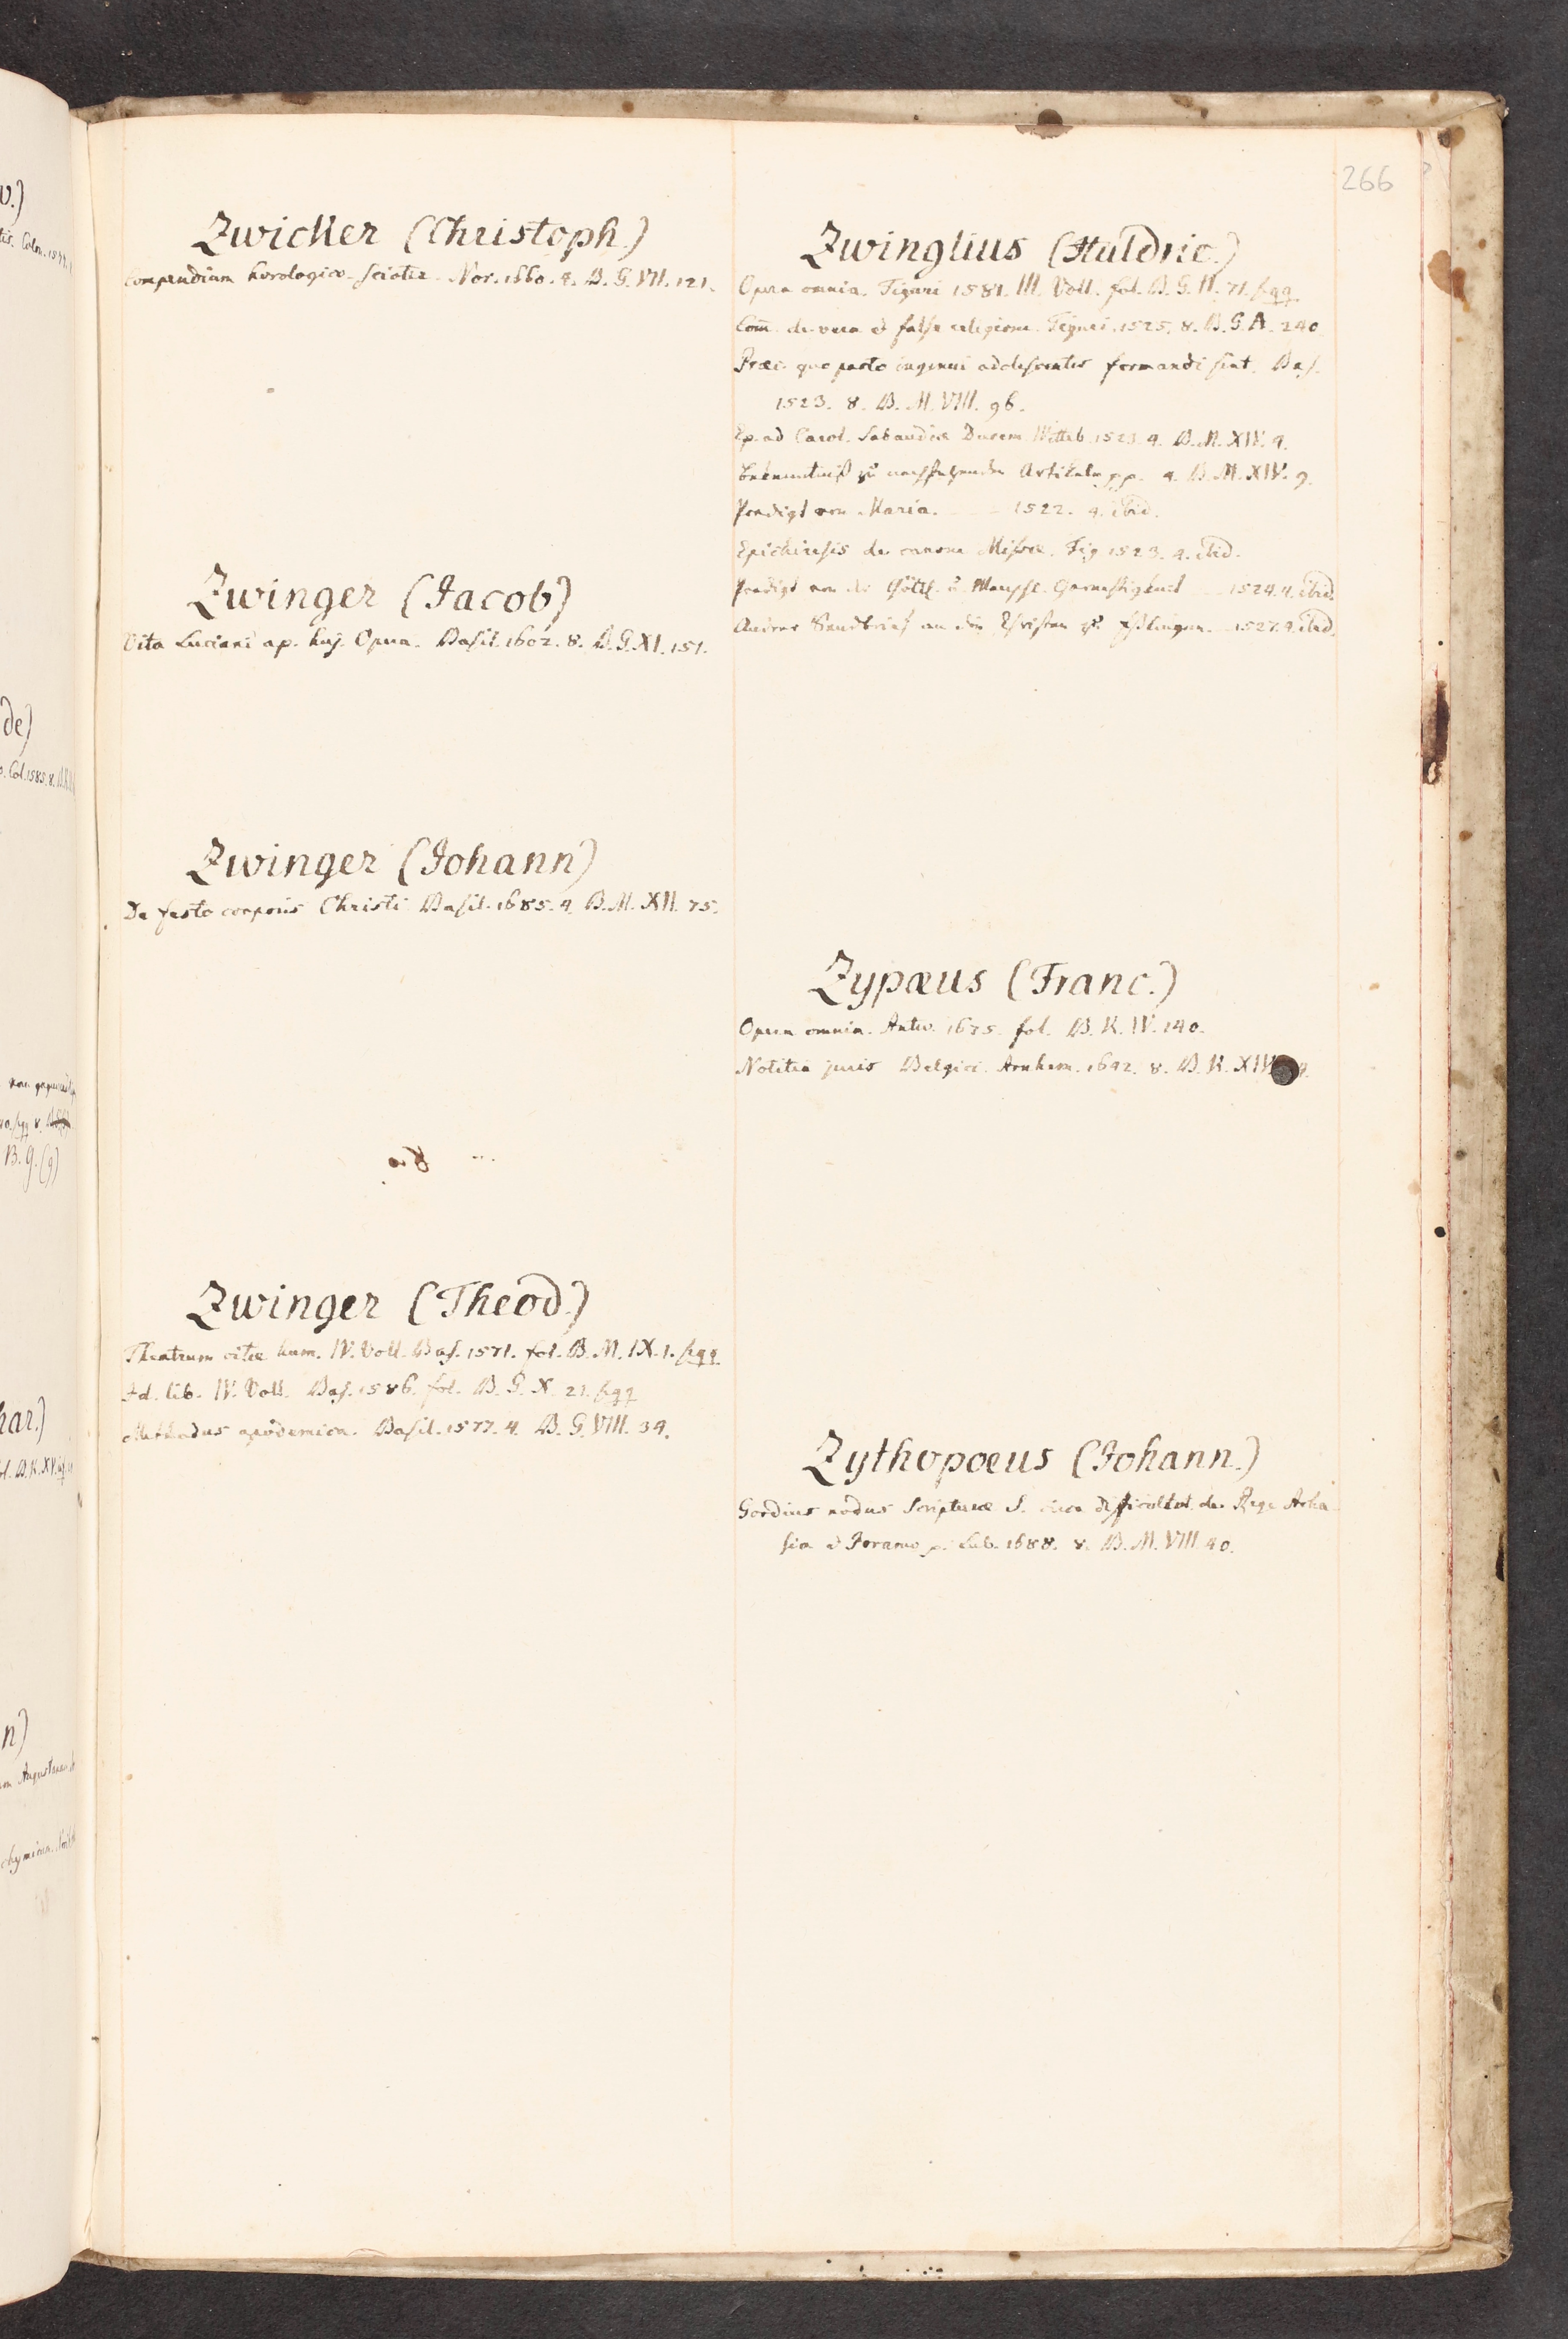 266
Zwicker (Christoph.)
Compendium horologico-scioter. Nor. 1660. 4. B. G. VII. 121.
Zwinger (Jacob)
Vita Luciani ap. huj. Opera. Basil. 1602. 8. B. G. XI. 151.
Zwinger (Johann)
De festo corporis Christi Basil. 1685. 4. B. M. XII. 75.
Zwinger (Theod.)
Theatrum vitæ hum. IV. Voll. Bas. 1571. fol. B. M. IX. 1. sqq.
Id. lib. IV. Voll. Bas. 1586. fol. B. G. X. 21. sqq
Methodus apodemica. Basil. 1577. 4. B. G. VIII. 34.
Zwinglius (Huldric.)
Opera omnia. Tiguri 1581. III. Voll. fol. B. G. II. 71. sqq.
Com̄. de vera et falsa religione. Tiguri. 1525. 8. B. G. A. 240
Præc. quo pacto ingenui adolescentes formandi sint. Bas.
1523. 8. B. M. VIII. 96.
Ep. ad Carol. Sabaudiæ Ducem Witteb. 1523. 4. B. M. XIV. 9.
Bekenntniß zu nachfolgenden Artikeln pp. 4. B. M. XIV. 9.
Predigt von Maria. 1522. 4. ibid.
Epichiresis de canone Missæ. Tig. 1523. 4. ibid.
Predigt von der Göttl. u. Menschl. Gerechtigkeit 1524. 4. ibid.
Andrer Sendbrief an die Christen zu Eßlingen. 1527. 4. ibid.
Zypæus (Franc.)
Opera omnia. Antw. 1675. fol. B. K. IV. 140.
Notitia juris Belgici. Arnhem. 1642. 8. B. K. XIV.
Zythopoeus (Johann.)
Gordius nodus Scripturæ S. circa difficultat. de Rege Acha-
sia et Joramo p. Lub. 1688. 8. B. M. VIII. 40.